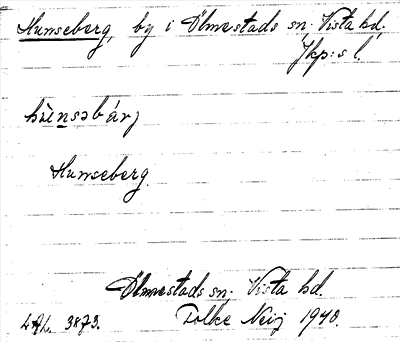 Hunseberg, by i Ölmestads sn. Vista hd.
Jkp:s l.
hùnsəbárj
Hunseberg.
Ölmestads sn; Vista hd
3873. Folke Neij 1940.